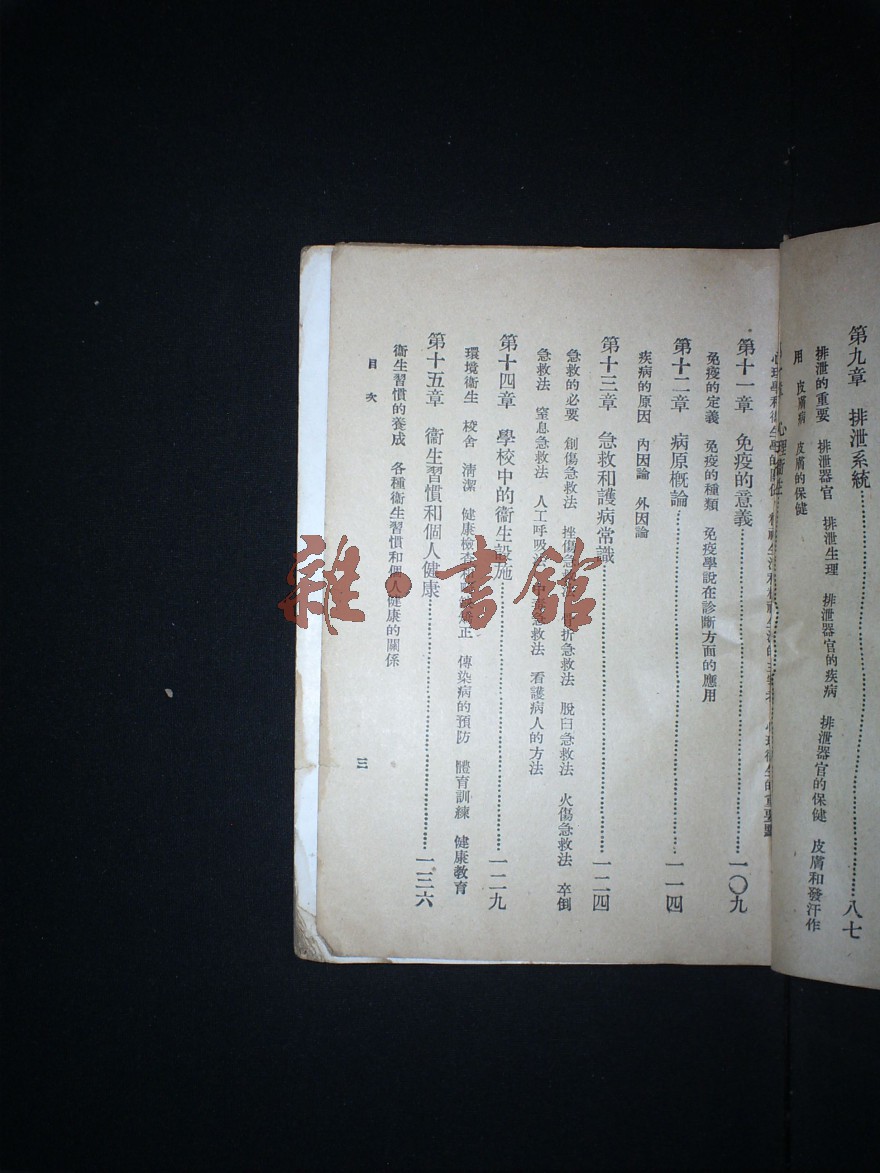 第九章　排泄系統……八七
排泄的重要　排泄器官　排泄生理　排泄器官的疾病　排泄器官的保健　皮膚和發汗作
用　皮膚病　皮膚的保健
心理衞生
第十一章　免疫的意義……一〇九
免疫的定義　免疫的種類　免疫學說在診斷方面的應用
第十二章　病原概論……一一四
疾病的原因　內因論　外因論
第十三章　急救和護病常識……一二四
急救的必要　創傷急救法　挫傷急救法　骨折急救法　脫臼急救法　火傷急救法　卒倒
急救法　窒息急救法　人工呼吸法　急救法　看護病人的方法
第十四章　學校中的衞生設施……一二九
環境衞生　校舍　清潔　健康檢查　矯正　傳染病的預防　體育訓練　健康教育
第十五章　衞生習慣和個人健康……一三六
衞生習慣的養成　各種衞生習慣和個人健康的關係
目次
三
雜·書館